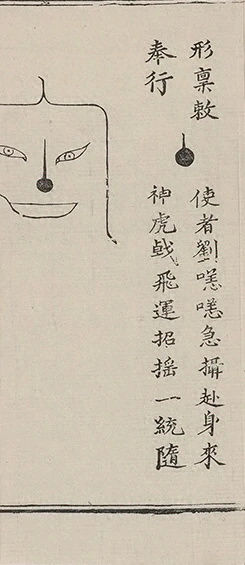 形稟敕 使者劉急攝赴身來
奉行 神虎戟飛運招搖一統隨